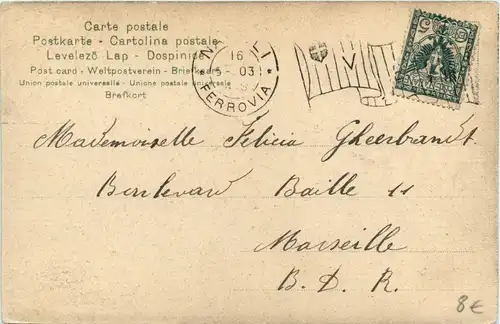 Carte postale
Postkarte - Cartolina postale
Levelező Lap - Dospinice
Post card - Weltpostverein - Briefkaart
Union postale universelle - Unione postale universale
Brefkort
16
5 - 03
FERROVIA
V
5
Mademoiselle Felicia Gheerbrandt
Boulevard Baille 11
Marseille
B. D. R.
8€